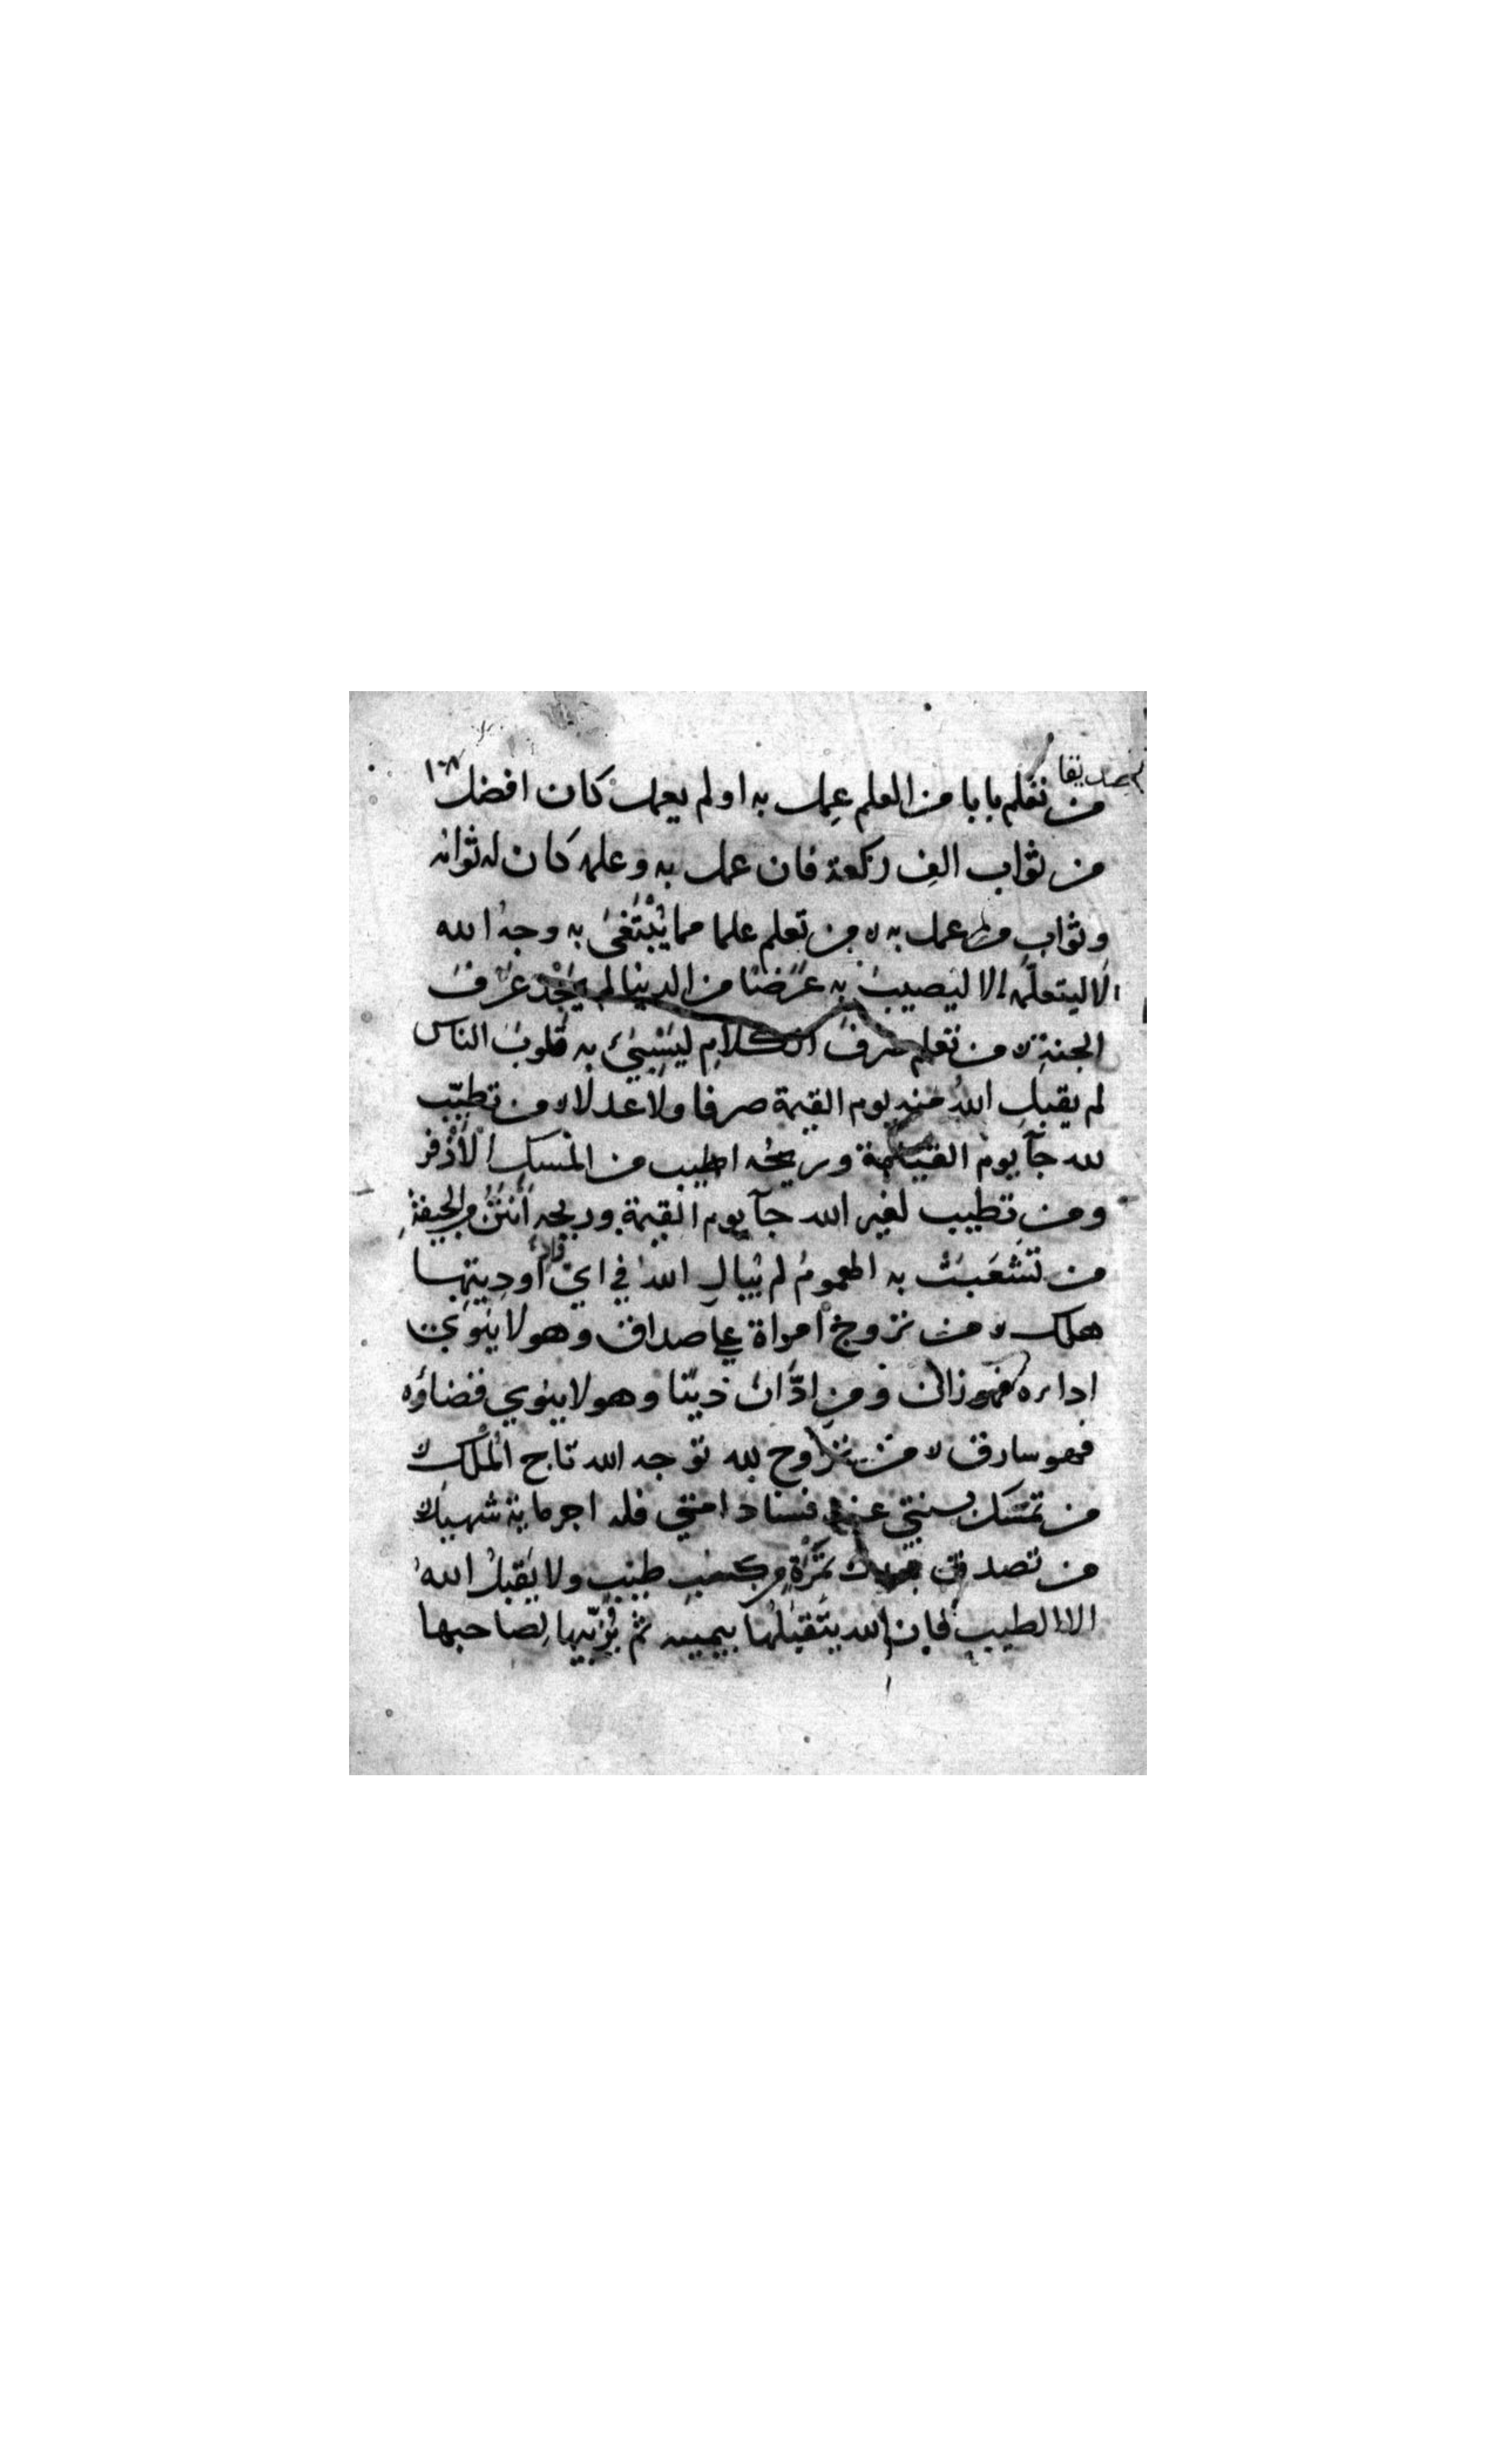 ١٠٨
من تعلم بابا من العلم عمل به او لم يعمل كان افضل
من ثواب الف ركعة فان عمل به وعلمه كان له ثوابه
وثواب من عمل به ه من تعلم علما مما يُبْتَغَى به وجه الله
لا ليتعلمه الا ليصيب به عَرَضًا من الدنيا لم يجد عَرْفَ
الجنة ه من تعلم صرف الكلام ليسبي به قلوب الناس
لم يقبل الله منه يوم القيمة صرفا ولا عدلا ه من تطيّب
لله جآ يوم القيمة وريحه اطيب من المسك الاذفر
ومن تطيب لغير الله جآ يوم القيمة وريحه أنتن من الجيفة
من تشعبت به الهموم لم يبال الله في اي اوديتها
هلك ه من تزوج امراة على صداق وهو لا ينوي
اداره فهو زان ومن ادّان دينا وهو لا ينوي قضاؤه
فهو سارق ه من تزوج لله توجه الله تاج الملك ه
من تمسك بسنتي عند فساد امتي فله اجر ماية شهيد ه
من تصدق تمرة من كسب طيب ولا يقبل الله
الا الطيب فان الله يتقبلها بيمينه ثم يُرَبّيها لصاحبها